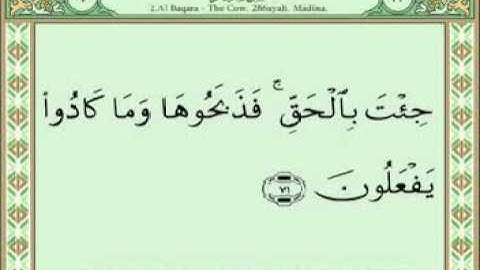 2.Al Baqara - The Cow. 286ayah. Madina.
جِئْتَ بِٱلْحَقِّ ۚ فَذَبَحُوهَا وَمَا كَادُوا۟
يَفْعَلُونَ ٧١